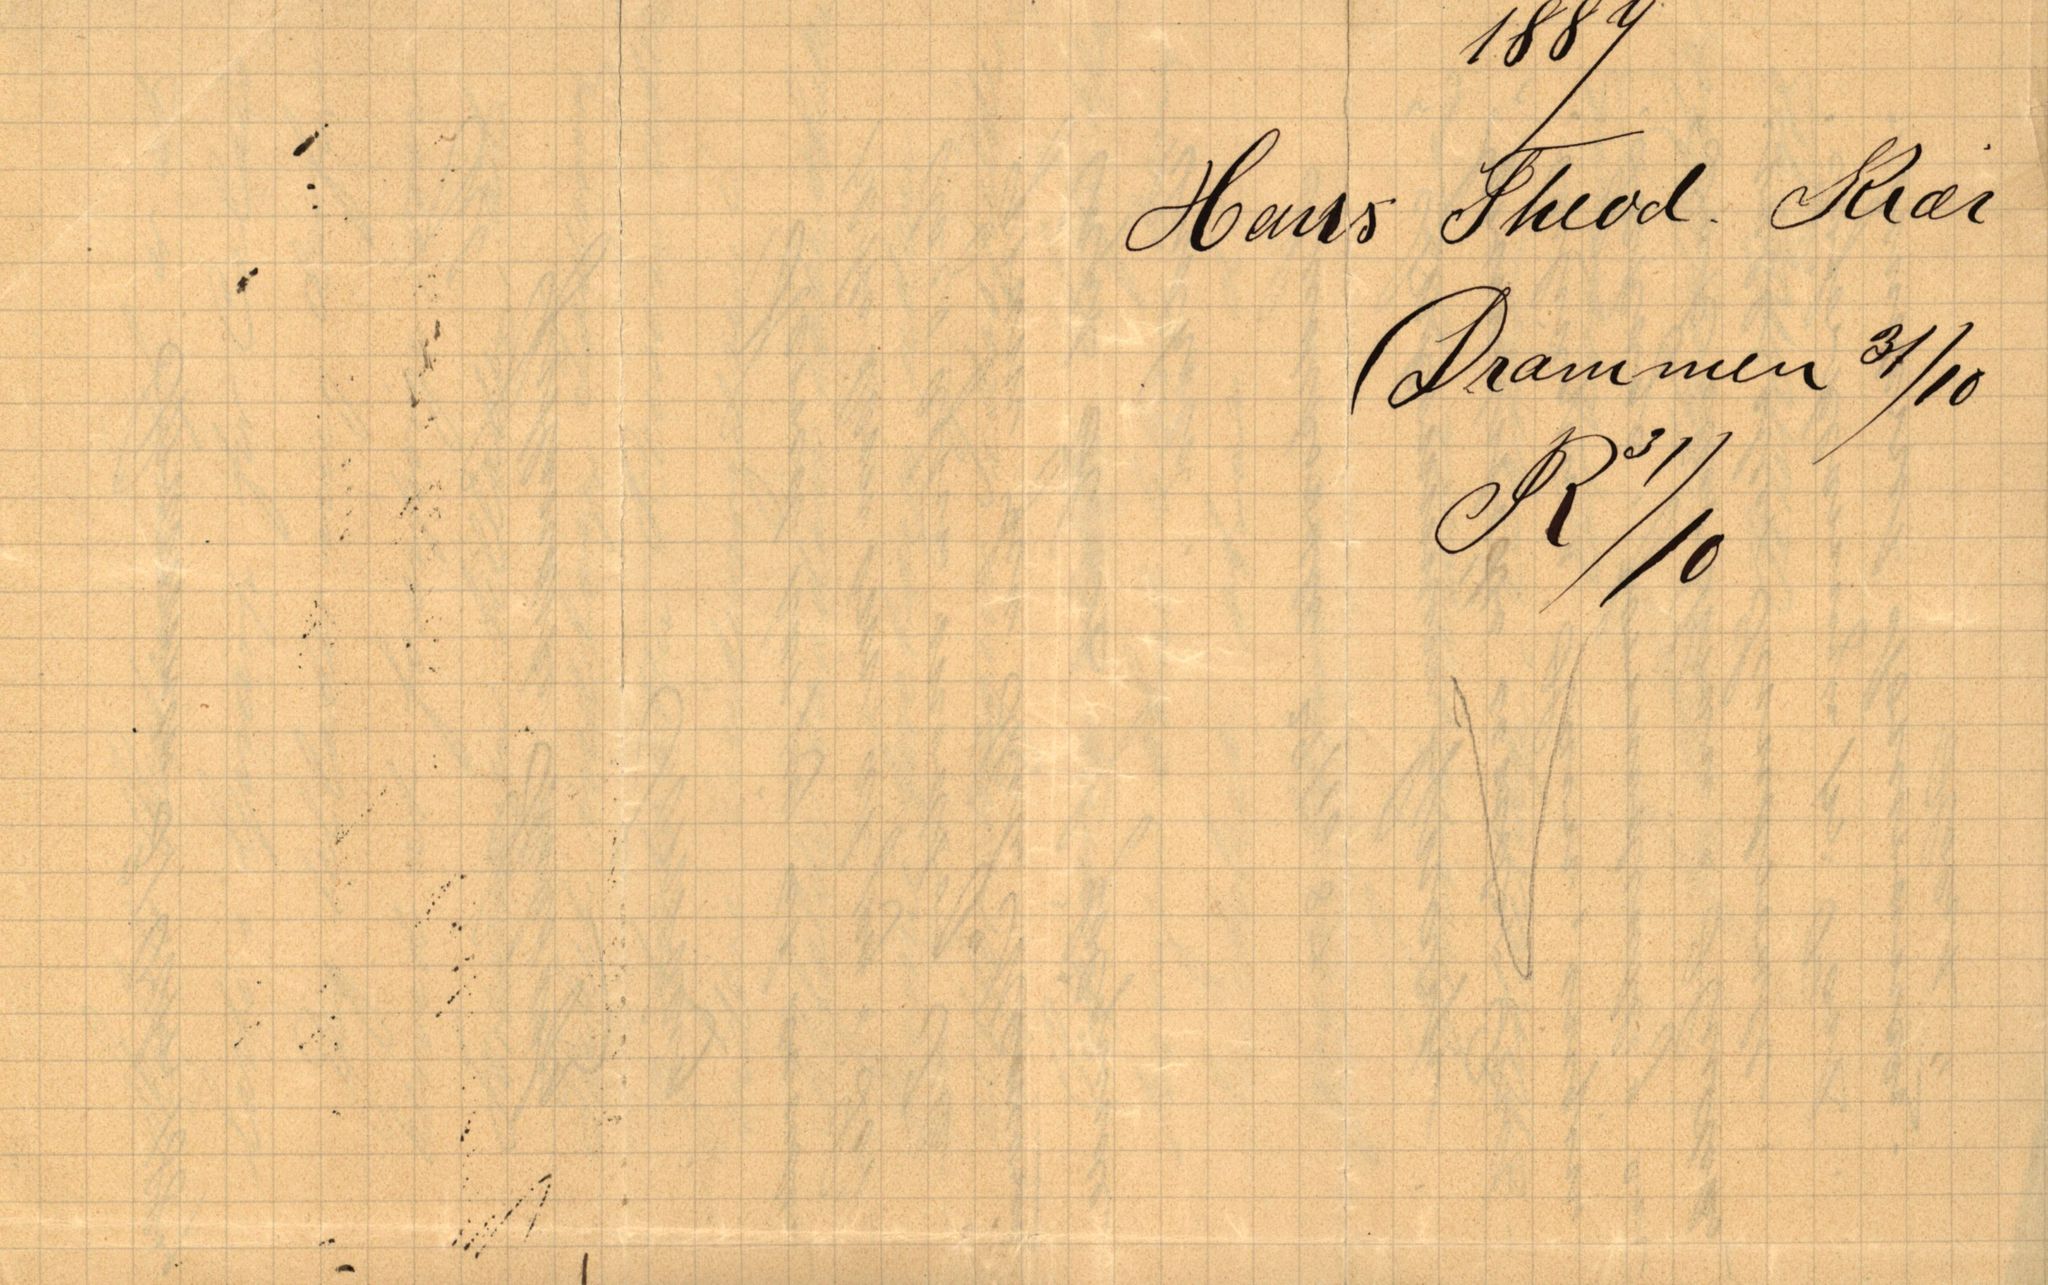 1887
Hans Theod. Kiær
Drammen 31/10
R 31/10